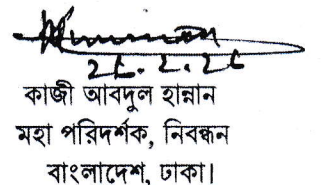 কাজী আবদুল হান্নান
মহা পরিদর্শক, নিবন্ধন
বাংলাদেশ, ঢাকা।